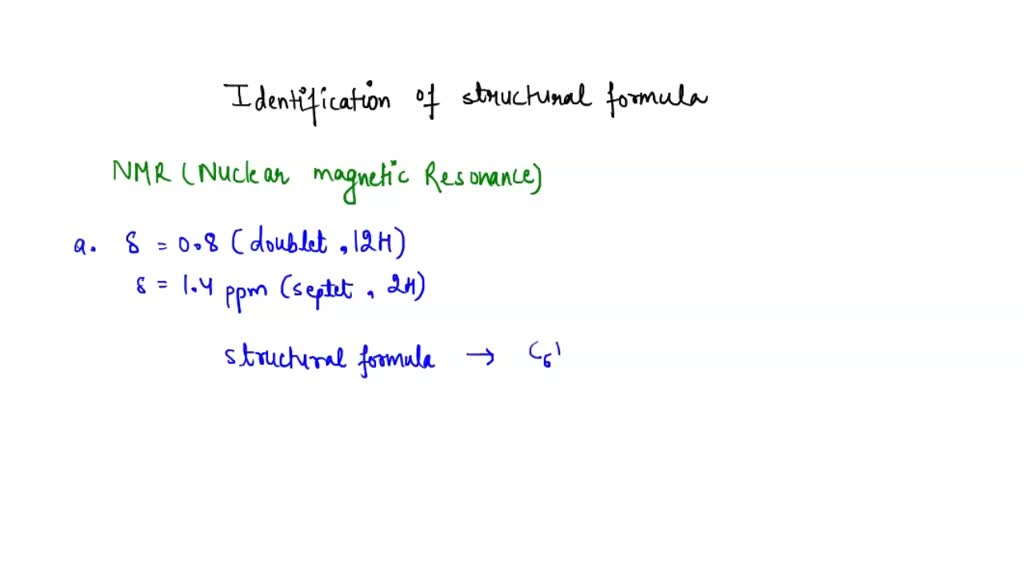 Identification of structural formula
NMR (Nuclear magnetic Resonance)
a. δ = 0.8 (doublet, 12H)
δ = 1.4 ppm (septet, 2H)
structural formula → C₆